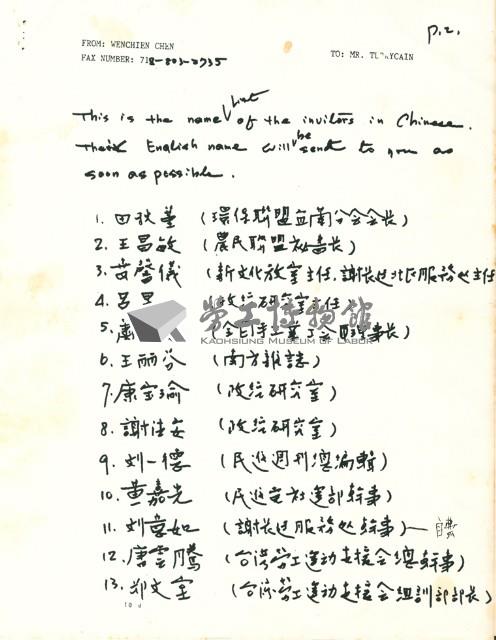 P.2.
FROM: WENCHIEN CHEN
TO: MR.
FAX NUMBER: 718-803-0735
This is the name list of the invitors in Chinese.
English name will be sent to you as
soon as possible.
1. 田秋堇 (環保聯盟 分會會長)
2. 王昌敏 (農民聯盟秘書長)
3. 黃馨儀 (新文化 室主任, 謝長廷北區服務処主任
4. 呂 政經研究室主任
勞工博物館
KAOHSIUNG MUSEUM OF LABOR
5. 工 會 理事長)
6. 王丽芬 (南方雜誌)
7. 康宝瑜 (政経研究室)
8. 謝佳 (政経研究室)
9. 刘一德 (民進週刊總編輯)
10. 黃嘉光 (民進党社運部幹事)
11. 刘章如 (謝長廷服務処幹事)
12. 唐雲騰 (台湾勞工運動支援会總幹事)
13. 郑文 (台湾勞工運動支援会組訓部部長)